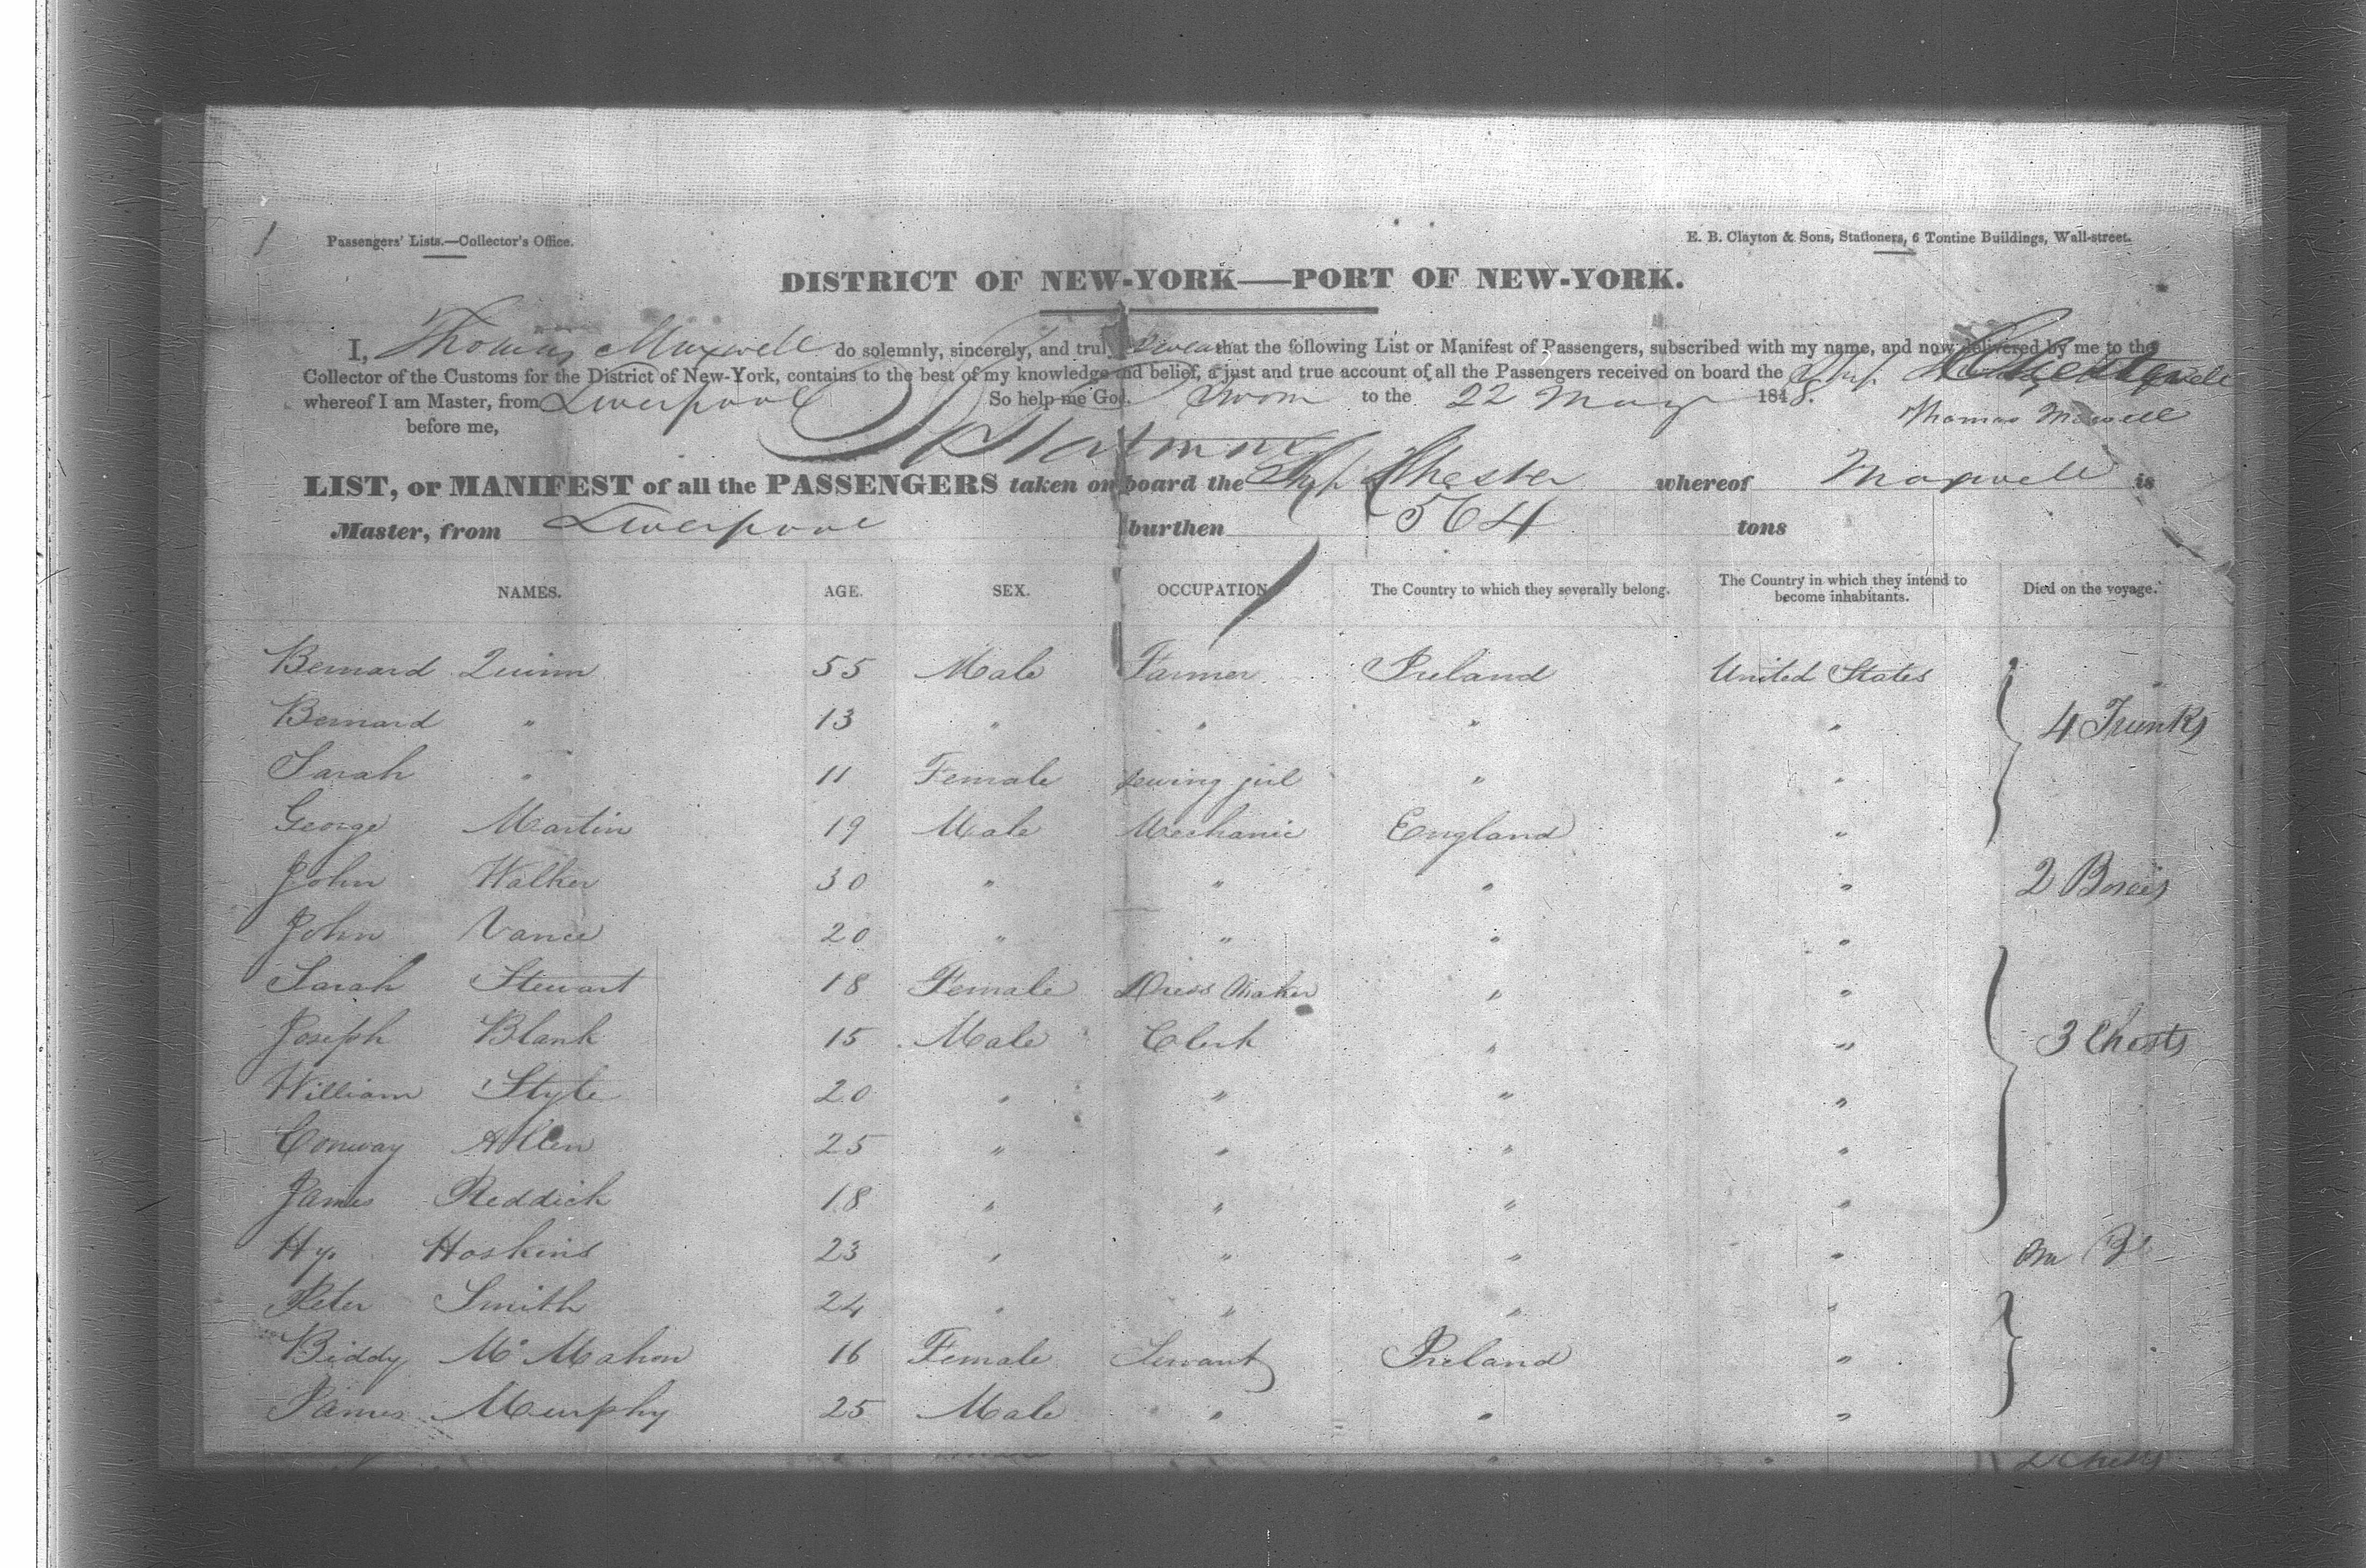 1
Passengers' Lists.—Collector's Office.
E. B. Clayton & Sons, Stationers, 6 Tontine Buildings, Wall-street.
DISTRICT OF NEW-YORK—PORT OF NEW-YORK.
I, Thomas Maxwell do solemnly, sincerely, and truly swear that the following List or Manifest of Passengers, subscribed with my name, and now delivered by me to the
Collector of the Customs for the District of New-York, contains to the best of my knowledge and belief, a just and true account of all the Passengers received on board the Ship Chester
whereof I am Master, from Liverpool So help me God. Sworn to the 22 May 1848.
Thomas Maxwell
before me,
LIST, or MANIFEST of all the PASSENGERS taken on board the Ship Chester whereof Maxwell is
Master, from Liverpool burthen 564 tons
NAMES. AGE. SEX. OCCUPATION The Country to which they severally belong. The Country in which they intend to become inhabitants. Died on the voyage.
Bernard Quinn 55 Male Farmer Ireland United States
Bernard " 13 " " " " 4 Trunks
Sarah " 11 Female sewing girl " "
George Martin 19 Male Mechanic England "
John Walker 30 " " " " 2 Boxes
John Vance 20 " " " "
Sarah Stewart 18 Female Dress Maker " "
Joseph Blank 15 Male Clerk " " 3 Chests
William Style 20 " " " "
Conway Allen 25 " " " "
James Reddick 18 " " " "
Hy. Hoskins 23 " " " "
Peter Smith 24 " " " "
Biddy McMahon 16 Female Servant Ireland "
James Murphy 25 Male " " "
2 Chests